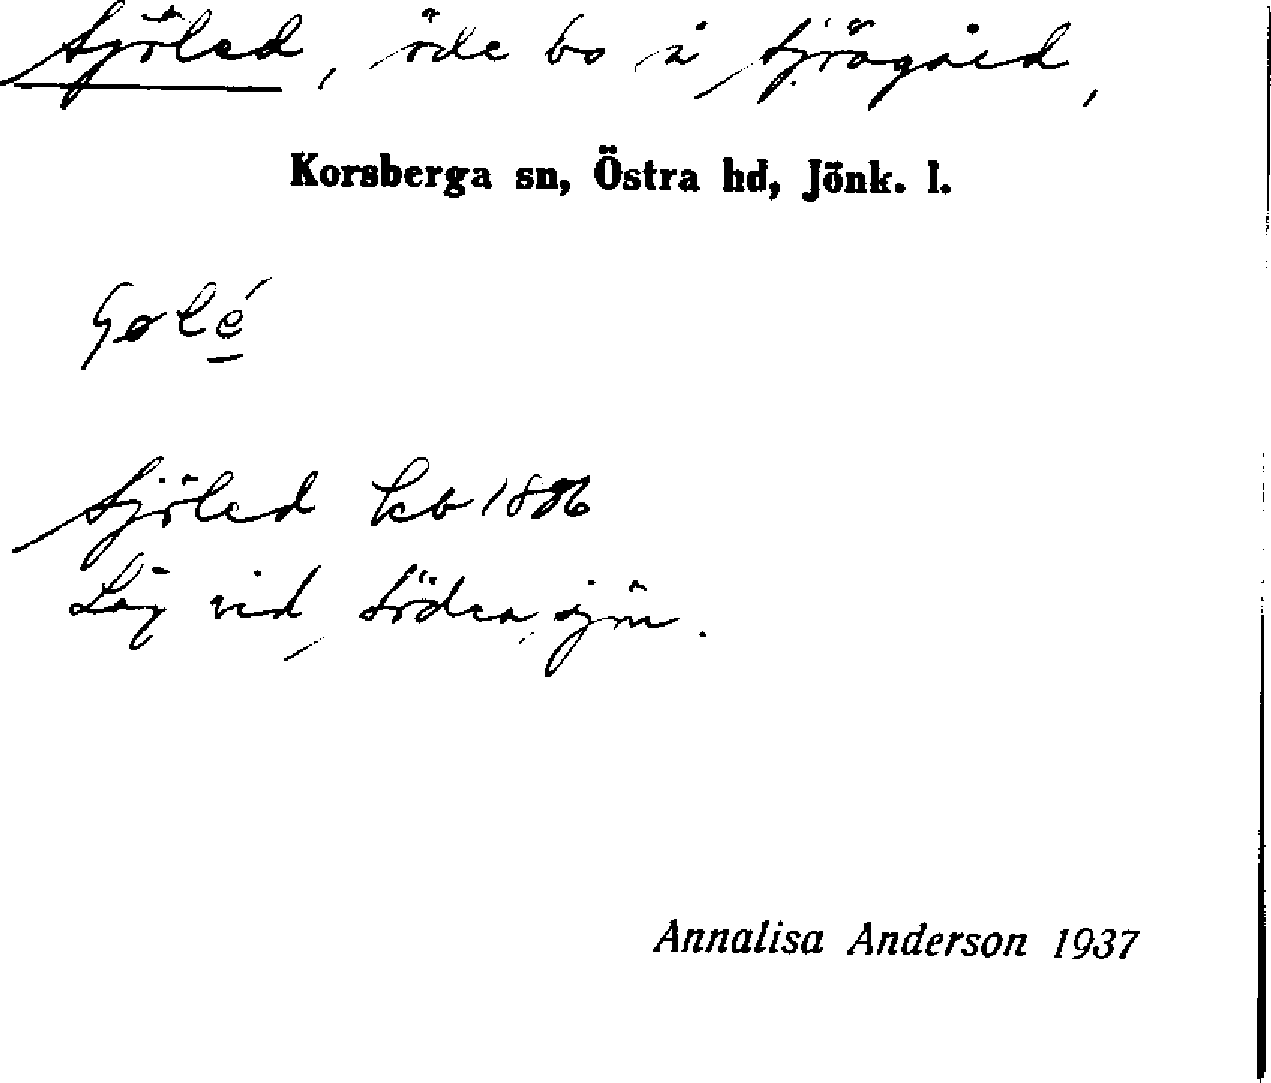 Sjöled, öde bo å Sjöagård,
Korsberga sn, Östra hd, Jönk. l.
Sjöled kb 1886
Låg vid Södra sjön.
Annalisa Anderson 1937